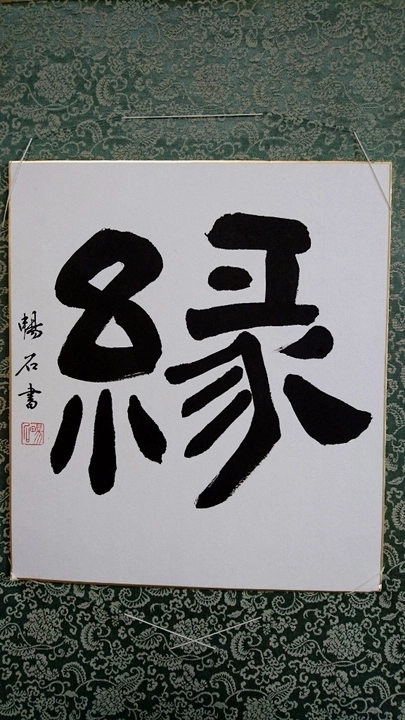 縁
暢石書